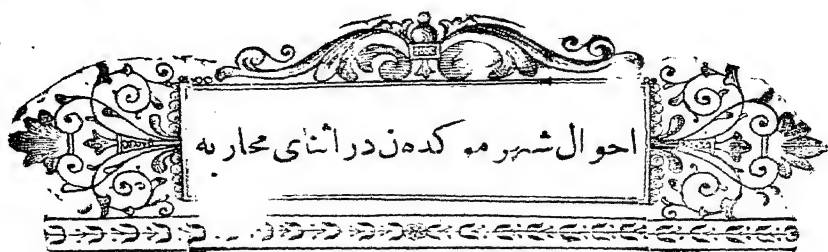 احوال شهر موكدەن در اثنای محاربه